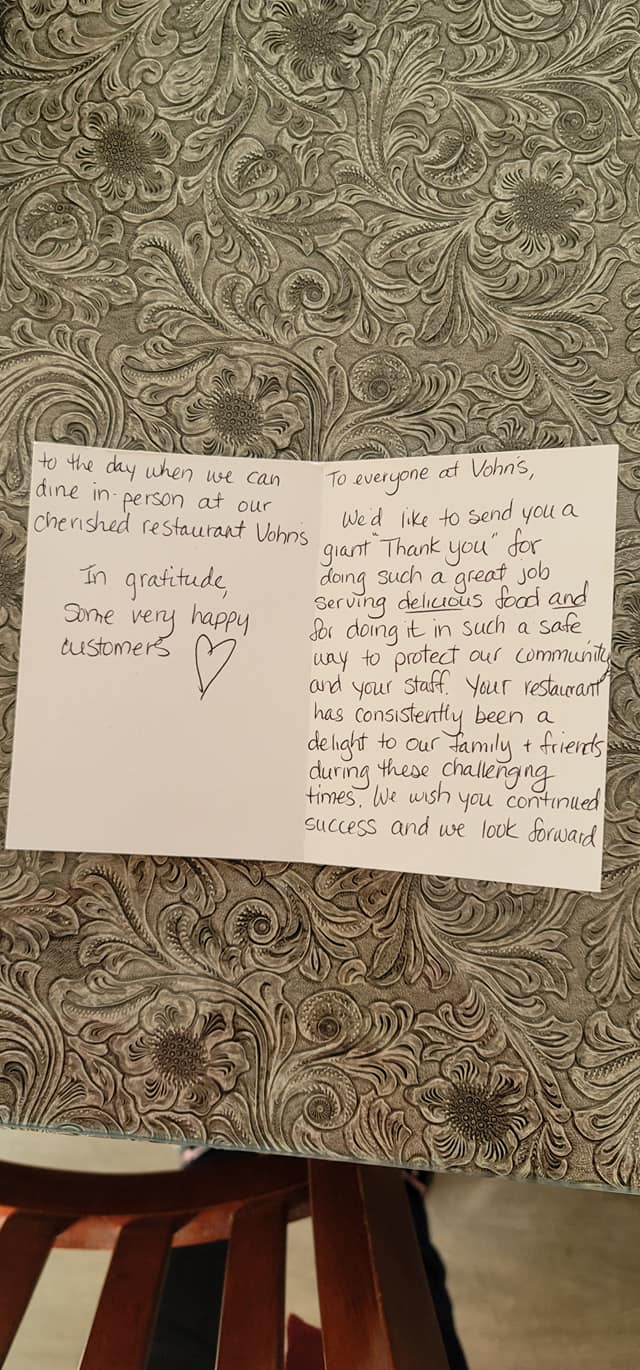 To everyone at Vohn's,
We'd like to send you a
giant "Thank you" for
doing such a great job
serving delicious food and
for doing it in such a safe
way to protect our community
and your staff. Your restaurant
has consistently been a
delight to our family + friends
during these challenging
times. We wish you continued
success and we look forward
to the day when we can
dine in-person at our
cherished restaurant Vohn's
In gratitude,
Some very happy
customers